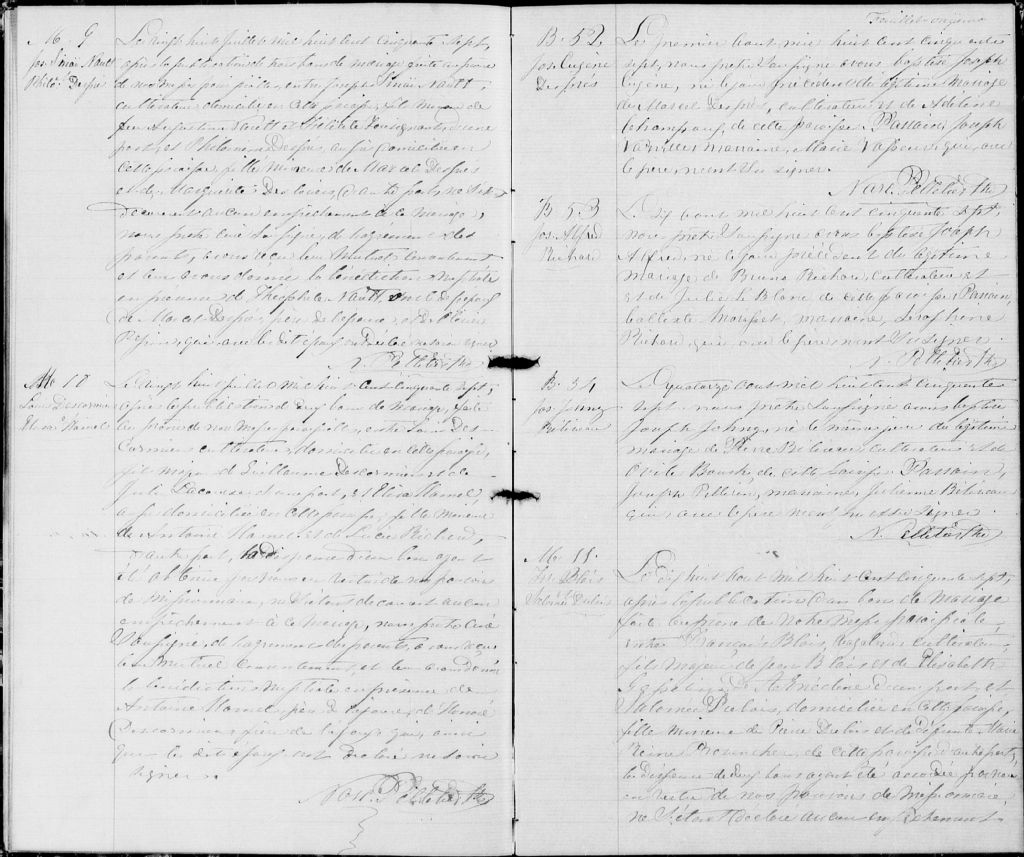 M. 9
Jos. Sinaï Nault
Philo. Després
Le vingt huit juillet mil huit cent cinquante sept,
après la publication de trois bans de mariage faite au prone
de nos messes paroissiales, entre Joseph Sinaï Nault,
cultivateur domicilié en cette paroisse, fils majeur de
feu Augustin Nault et d'une
part, et Philomène Després, aussi domiciliée en
cette paroisse, fille mineure de Marcel Després
et de Marguerite Desloriers, d'autre part, ne s'étant
découvert aucun empêchement à ce mariage,
nous prêtre curé soussigné, de l'agrément des
parents, avons reçu leur mutuel consentement
et leur avons donné la bénédiction nuptiale
en présence de Théophile Nault oncle de l'époux,
de Marcel Després, père de l'épouse, et de
Pepin, qui avec le dit époux ont déclaré ne savoir signer
N. Pelletier Ptre
M. 10
Louis Descormiers
Elisée Hamel
Le vingt huit juillet mil huit cent cinquante sept,
après la publication de deux bans de mariage, faite
au prone de nos messes paroissiales, entre Louis Des-
Cormiers cultivateur, domicilié en cette paroisse,
fils majeur de Guillaume Descormiers et de
Julie Lacourse d'une part, et Elisée Hamel,
aussi domiciliée en cette paroisse, fille mineure
de Antoine Hamel et de Lucie Richard,
d'autre part, la dispense d'un ban ayant
été obtenue par nous en vertu de nos pouvoirs
de missionnaire, ne s'étant découvert aucun
empêchement à ce mariage, nous prêtre curé
soussigné, de l'agrément des parents, avons reçu
leur mutuel consentement, et leur avons donné
la bénédiction nuptiale en présence de
Antoine Hamel, père de l'épouse, de Honoré
Descormiers, frère de l'époux qui, ainsi
que les dits époux ont déclaré ne savoir
signer.
Narc. Pelletier Ptre
Feuillet onzième
B. 52
Jos. Eugène
Després
Le premier août mil huit cent cinquante
sept, nous prêtre soussigné avons baptisé Joseph
Eugène, né le jour précédent du légitime mariage
de Marcel Després, cultivateur et de Adeline
Lechampeau, de cette paroisse. Parrain, Joseph
marraine, Marie Vasseur, qui, avec
le père, n'ont su signer.
Narc. Pelletier Ptre
B. 53
Jos. Alfred
Richard
Le dix août mil huit cent cinquante sept,
nous prêtre soussigné avons baptisé Joseph
Alfred, né le jour précédent du légitime
mariage de Bruno Richard, cultivateur et
et de Julie LeBlanc de cette paroisse. Parrain,
Calixte marraine, Séraphine
Richard, qui avec le père n'ont su signer.
N. Pelletier Ptre
B. 54
Jos. Johnny
Béliveau
Le quatorze août mil huit cent cinquante
sept, nous prêtre soussigné avons baptisé
Joseph Johnny, né le même jour du légitime
mariage de Pierre Béliveau, cultivateur et de
Odile Bourke, de cette paroisse. Parrain,
Joseph Pellerin, marraine, Julienne Béliveau
qui, avec le père n'ont su signer
N. Pelletier Ptre
M. 11.
Frs Blais
Salomée Dubois
Le dix huit août mil huit cent cinquante sept,
après la publication d'un ban de mariage
faite au prone de notre messe paroissiale
entre François Blais, cultivateur,
fils majeur de Jean Blais et de Elisabeth
d'une part, et
Salomée Dubois, domiciliée en cette paroisse,
fille mineure de Pierre Dubois et de défunte Marie
Reine Provencher, de cette paroisse d'autre part,
la dispense de deux bans ayant été accordée par nous
en vertu de nos pouvoirs de missionnaire,
ne s'étant déclaré aucun empêchement